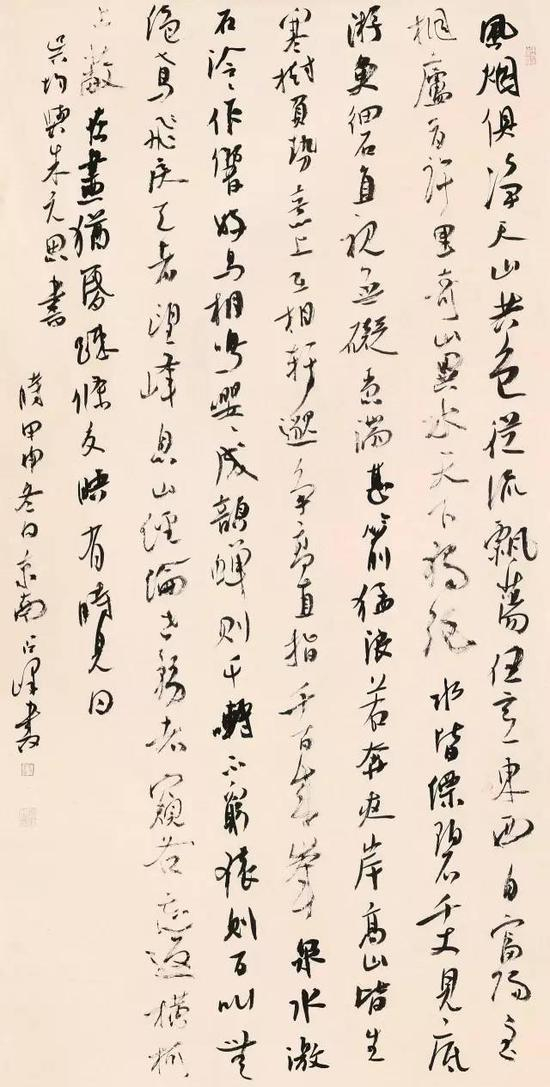 風烟俱淨天山共色從流飄蕩任意東西自富陽至
桐廬百許里奇山異水天下獨絕水皆縹碧千丈見底
游魚細石直視無礙急湍甚箭猛浪若奔夾岸高山皆生
寒樹負勢竞上互相軒邈爭高直指千百成峯泉水激
石泠泠作響好鳥相鳴嚶嚶成韻蟬則千轉不窮猿則百叫無
絕鳶飛戾天者望峰息心經綸世務者窺谷忘返橫柯
上蔽在晝猶昏疎條交映有時見日
吳均與朱元思書
甲申冬日京南書